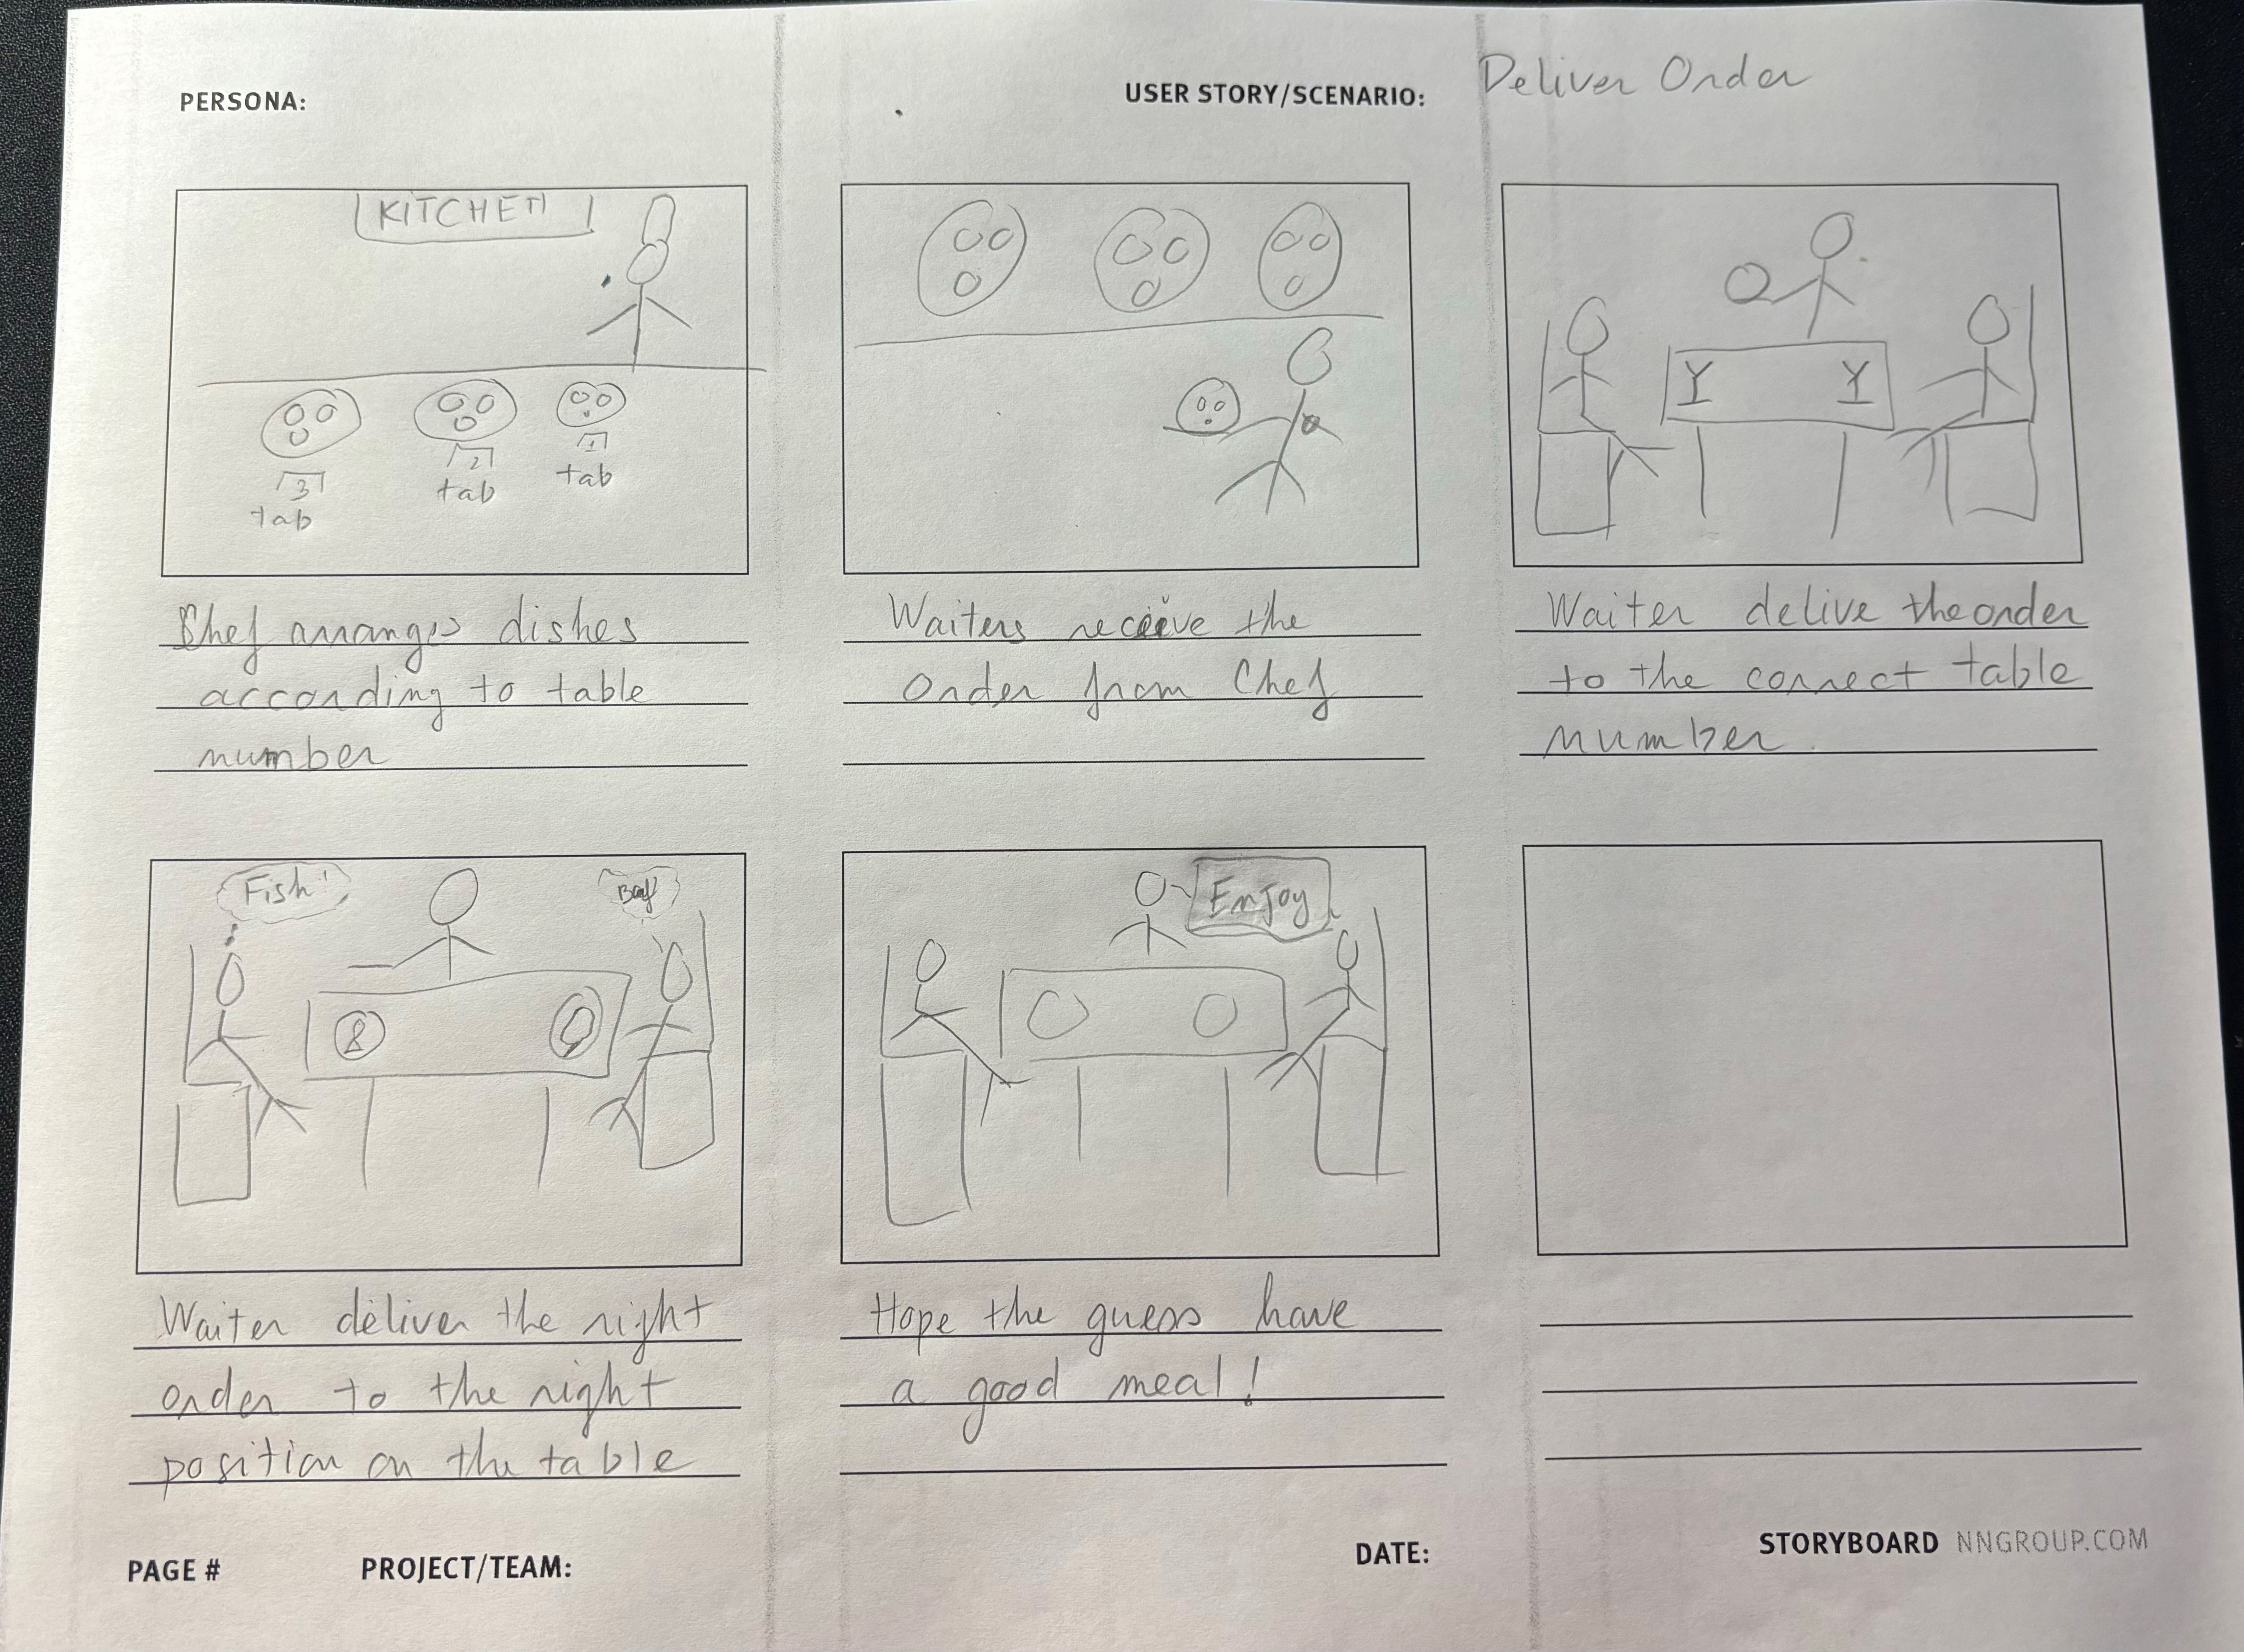 PERSONA:
USER STORY/SCENARIO: Deliver Order
KITCHEN
3
tab
2
tab
1
tab
Chef arranges dishes
according to table
number
Waiters receive the
Order from Chef
Waiter delive the order
to the correct table
number.
Fish!
Beef
Waiter deliver the right
order to the right
position on the table
Enjoy
Hope the guess have
a good meal!
PAGE #
PROJECT/TEAM:
DATE:
STORYBOARD NNGROUP.COM